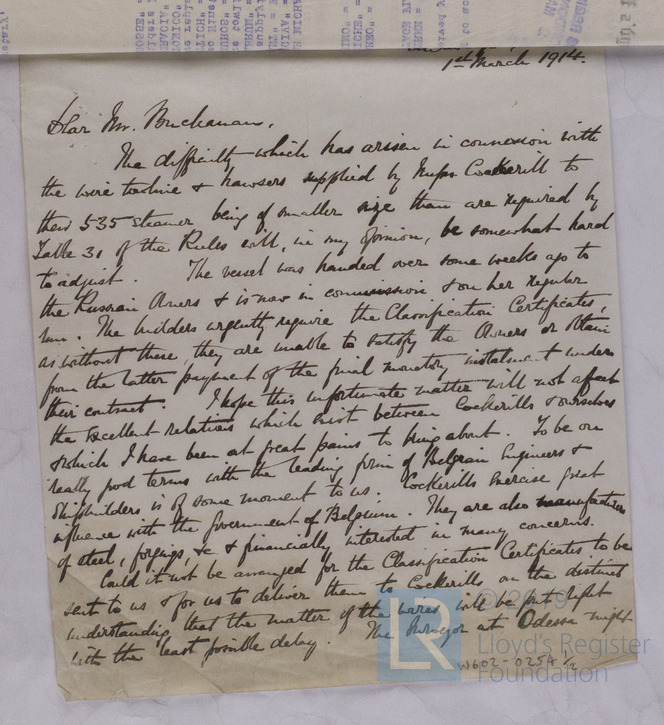 1st March 1914.
Dear Mr. Buchanan,
The difficulty which has arisen in connexion with
the wire towline & hawsers supplied by Messrs Cockerill to
their 535 steamer being of smaller size than are required by
Table 31 of the Rules will, in my opinion, be somewhat hard
to adjust. The vessel was handed over some weeks ago to
the Russian Owners & is now in commission & on her regular
run. The builders urgently require the Classification Certificates,
as without these, they are unable to satisfy the Owners or obtain
from the latter payment of the final monetary instalment under
their contract. I hope this unfortunate matter will not affect
the excellent relations which exist between Cockerills & ourselves
& which I have been at great pains to bring about. To be on
really good terms with the leading firm of Belgian Engineers &
Shipbuilders is of some moment to us. Cockerills exercise great
influence with the Government of Belgium. They are also manufacturers
of steel, forgings, &c & financially interested in many concerns.
Could it not be arranged for the Classification Certificates to be
sent to us & for us to deliver them to Cockerills on the distinct
understanding that the matter of the wires will be put right
with the least possible delay. The Surveyor at Odessa might
W602-0254 1/2
LR
Lloyd's Register
Foundation